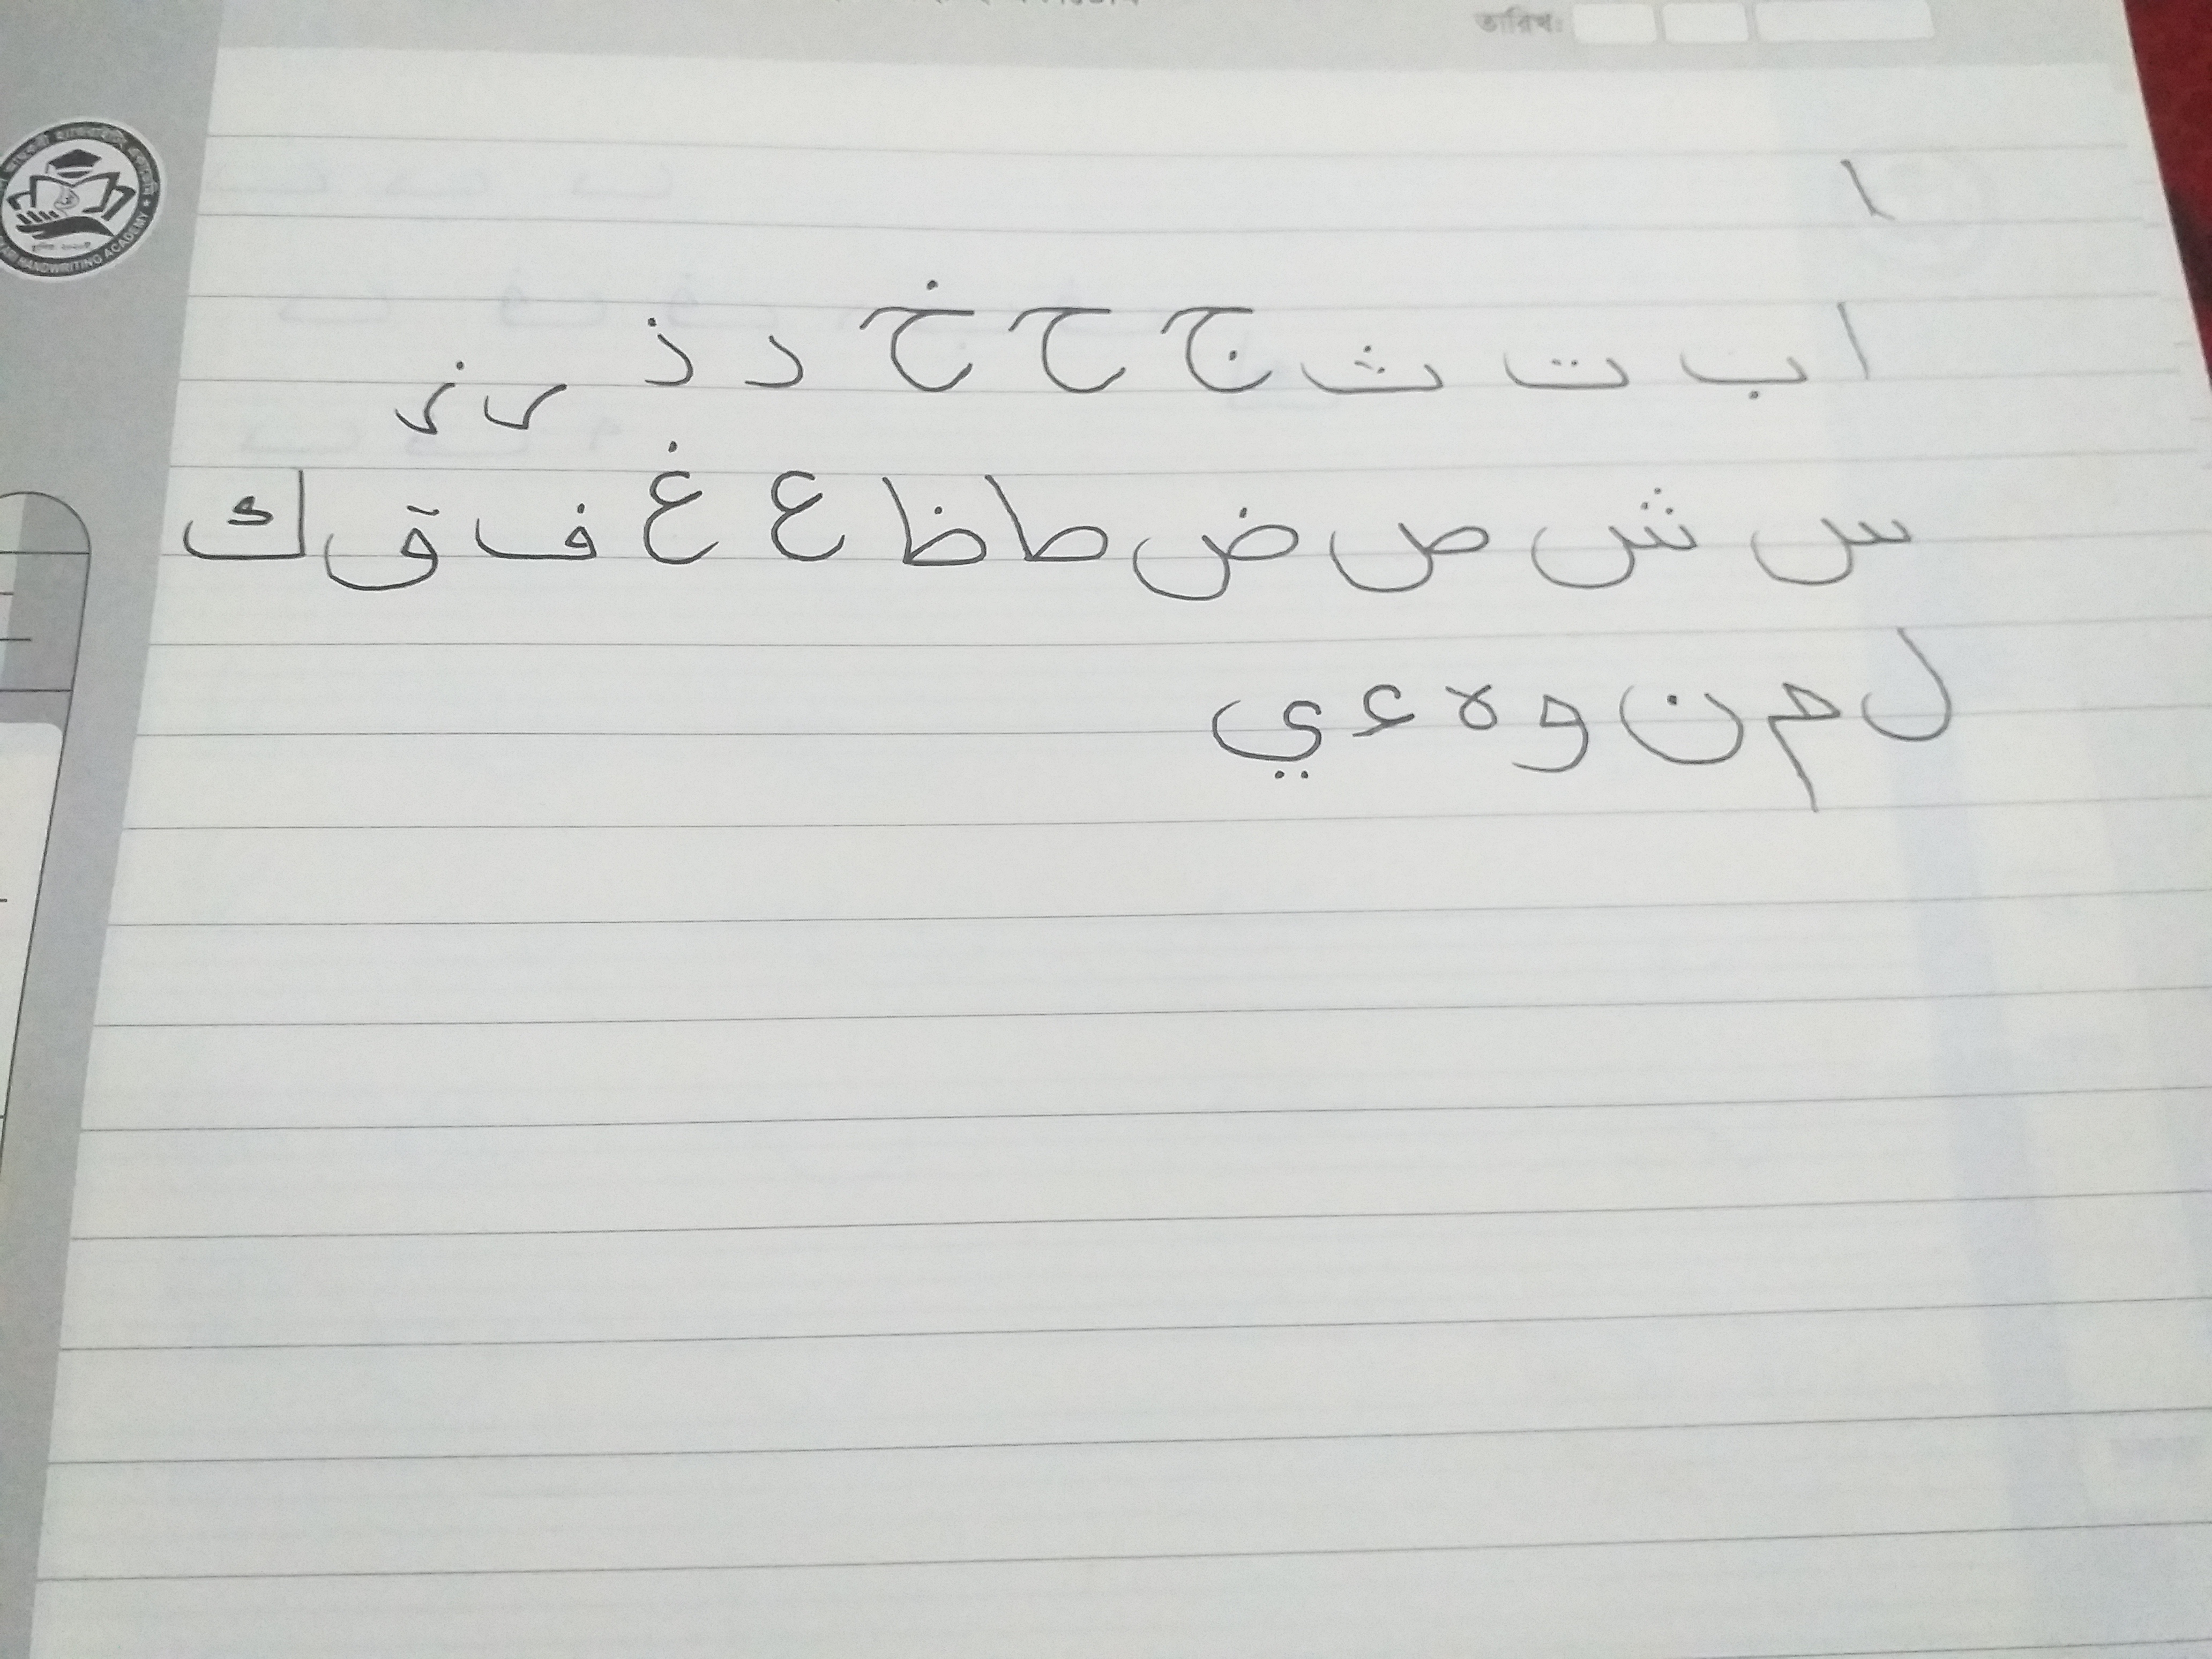 তারিখ:
HANDWRITING ACADEMY
ا
ا ب ت ث ج ح خ د ذ ر ز
س ش ص ض ط ظ ع غ ف ق ك
ل م ن و ه ء ي